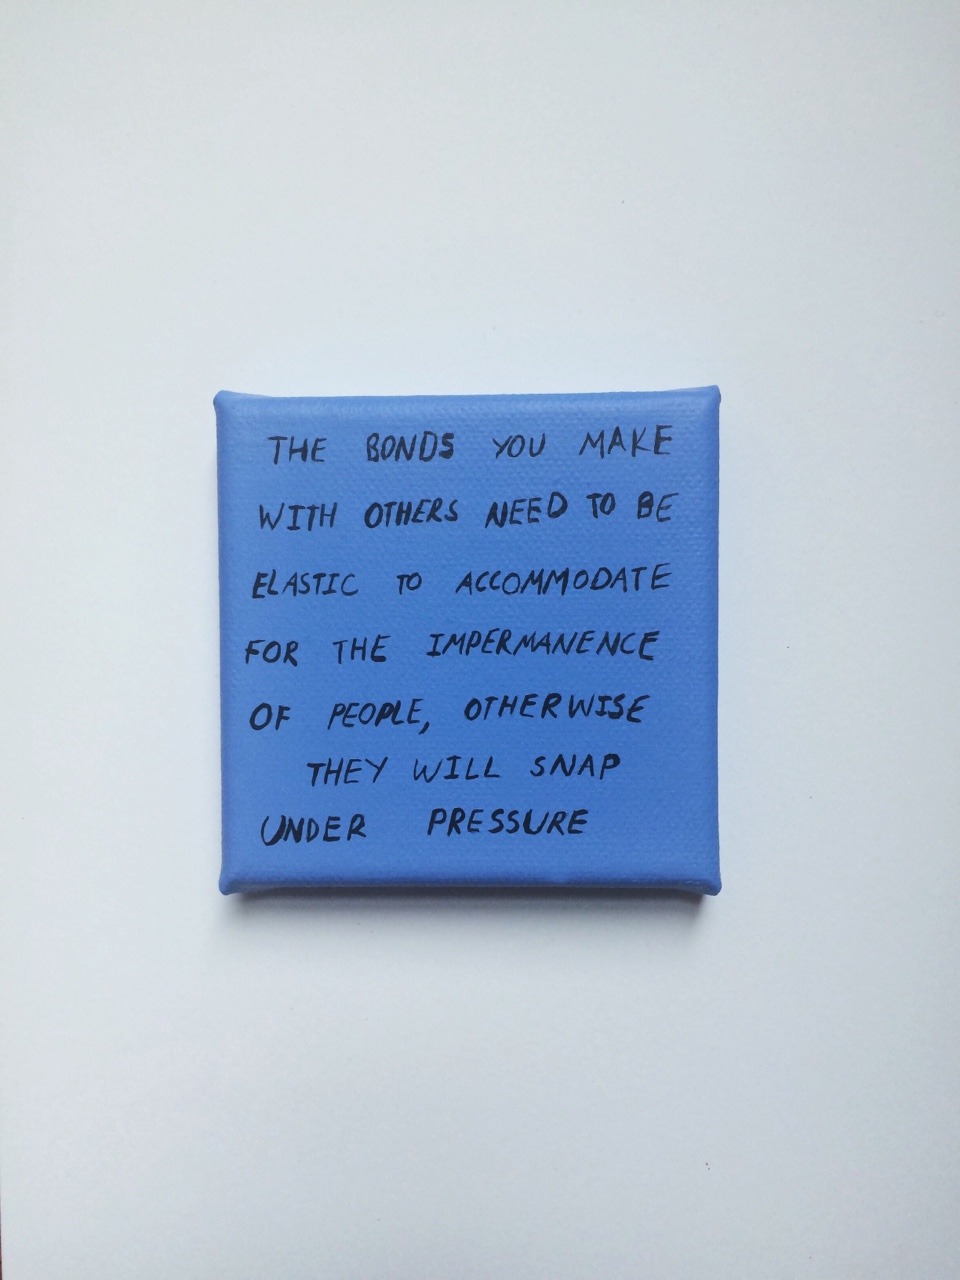 THE BONDS YOU MAKE
WITH OTHERS NEED TO BE
ELASTIC TO ACCOMMODATE
FOR THE IMPERMANENCE
OF PEOPLE, OTHERWISE
THEY WILL SNAP
UNDER PRESSURE